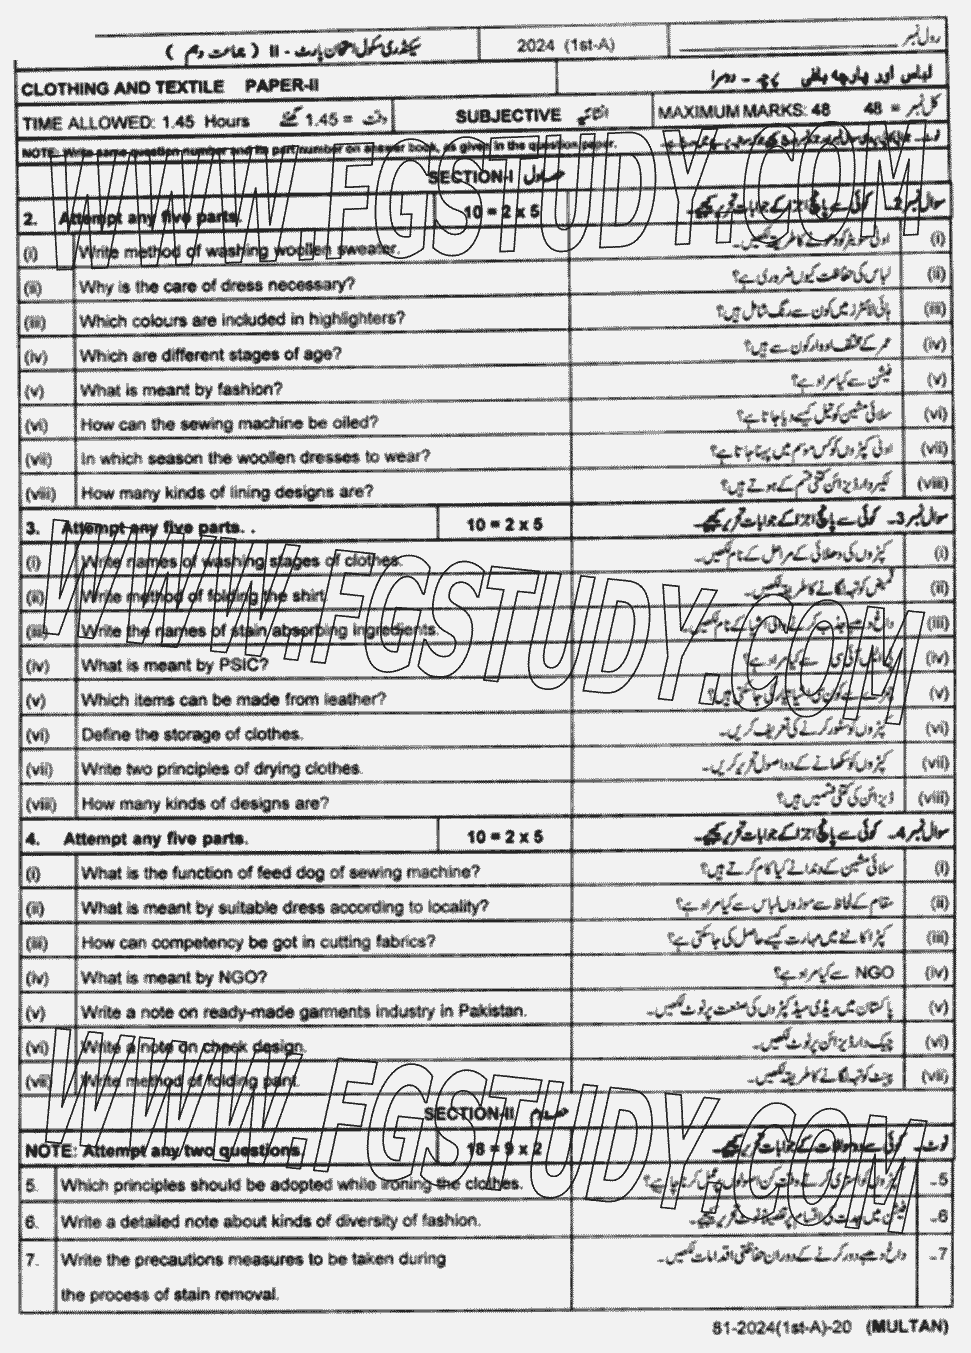 سیکنڈری سکول امتحان پارٹ - II ( جماعت دہم ) 2024 (1st-A) رول نمبر
CLOTHING AND TEXTILE PAPER-II لباس اور پارچہ بافی پرچہ - دوسرا
TIME ALLOWED: 1.45 Hours وقت = 1.45 گھنٹے SUBJECTIVE انشائیہ MAXIMUM MARKS: 48 کل نمبر = 48
NOTE: Write same question number and its part number on answer book, as given in the question paper. نوٹ۔
SECTION-I حصہ اول
2. Attempt any five parts. 10 = 2 x 5 سوال نمبر 2۔ کوئی سے پانچ اجزا کے جوابات تحریر کیجیے۔
(i) Write method of washing woollen sweater. اونی سویٹر کو دھونے کا طریقہ لکھیں۔ (i)
(ii) Why is the care of dress necessary? لباس کی حفاظت کیوں ضروری ہے؟ (ii)
(iii) Which colours are included in highlighters? ہائی لائٹرز میں کون سے رنگ شامل ہیں؟ (iii)
(iv) Which are different stages of age? عمر کے مختلف ادوار کون سے ہیں؟ (iv)
(v) What is meant by fashion? فیشن سے کیا مراد ہے؟ (v)
(vi) How can the sewing machine be oiled? سلائی مشین کو تیل کیسے دیا جاتا ہے؟ (vi)
(vii) In which season the woollen dresses to wear? اونی کپڑوں کو کس موسم میں پہنا جاتا ہے؟ (vii)
(viii) How many kinds of lining designs are? لکیردار ڈیزائن کتنی قسم کے ہوتے ہیں؟ (viii)
3. Attempt any five parts. . 10 = 2 x 5 سوال نمبر 3۔ کوئی سے پانچ اجزا کے جوابات تحریر کیجیے۔
(i) Write names of washing stages of clothes. کپڑوں کی دھلائی کے مراحل کے نام لکھیں۔ (i)
(ii) Write method of folding the shirt. قمیض کو تہہ لگانے کا طریقہ لکھیں۔ (ii)
(iii) Write the names of stain absorbing ingredients. داغ دھبے جذب کرنے والی اشیا کے نام لکھیں۔ (iii)
(iv) What is meant by PSIC? پی ایس آئی سی سے کیا مراد ہے؟ (iv)
(v) Which items can be made from leather? چمڑے سے کون سی اشیا تیار کی جا سکتی ہیں؟ (v)
(vi) Define the storage of clothes. کپڑوں کو سٹور کرنے کی تعریف کریں۔ (vi)
(vii) Write two principles of drying clothes. کپڑوں کو سکھانے کے دو اصول تحریر کریں۔ (vii)
(viii) How many kinds of designs are? ڈیزائن کی کتنی قسمیں ہیں؟ (viii)
4. Attempt any five parts. 10 = 2 x 5 سوال نمبر 4۔ کوئی سے پانچ اجزا کے جوابات تحریر کیجیے۔
(i) What is the function of feed dog of sewing machine? سلائی مشین کے دندانے کیا کام کرتے ہیں؟ (i)
(ii) What is meant by suitable dress according to locality? مقام کے لحاظ سے موزوں لباس سے کیا مراد ہے؟ (ii)
(iii) How can competency be got in cutting fabrics? کپڑا کاٹنے میں مہارت کیسے حاصل کی جا سکتی ہے؟ (iii)
(iv) What is meant by NGO? NGO سے کیا مراد ہے؟ (iv)
(v) Write a note on ready-made garments industry in Pakistan. پاکستان میں ریڈی میڈ کپڑوں کی صنعت پر نوٹ لکھیں۔ (v)
(vi) Write a note on check design. چیک دار ڈیزائن پر نوٹ لکھیں۔ (vi)
(vii) Write method of folding pant. پینٹ کو تہہ لگانے کا طریقہ لکھیں۔ (vii)
SECTION-II حصہ دوم
NOTE: Attempt any two questions. 18 = 9 x 2 نوٹ۔ کوئی سے دو سوالات کے جوابات تحریر کیجیے۔
5. Which principles should be adopted while ironing the clothes. کپڑوں کو استری کرتے وقت کن اصولوں پر عمل کرنا چاہیے؟ 5۔
6. Write a detailed note about kinds of diversity of fashion. فیشن میں جدت کی اقسام پر تفصیلاً نوٹ لکھیے۔ 6۔
7. Write the precautions measures to be taken during داغ دھبے دور کرنے کے دوران حفاظتی اقدامات لکھیں۔ 7۔
the process of stain removal.
81-2024(1st-A)-20 (MULTAN)
WWW.FGSTUDY.COM
WWW.FGSTUDY.COM
WWW.FGSTUDY.COM